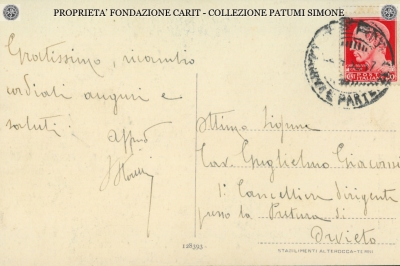 PROPRIETA' FONDAZIONE CARIT - COLLEZIONE PATUMI SIMONE
Gratissimo, ricambio
cordiali auguri e
saluti!
Affmo
Ottimo Signore
Cav. Guglielmo Giacomi
1° Cancelliere Dirigente
presso la Pretura di
Orvieto
128393
STABILIMENTI ALTEROCCA-TERNI